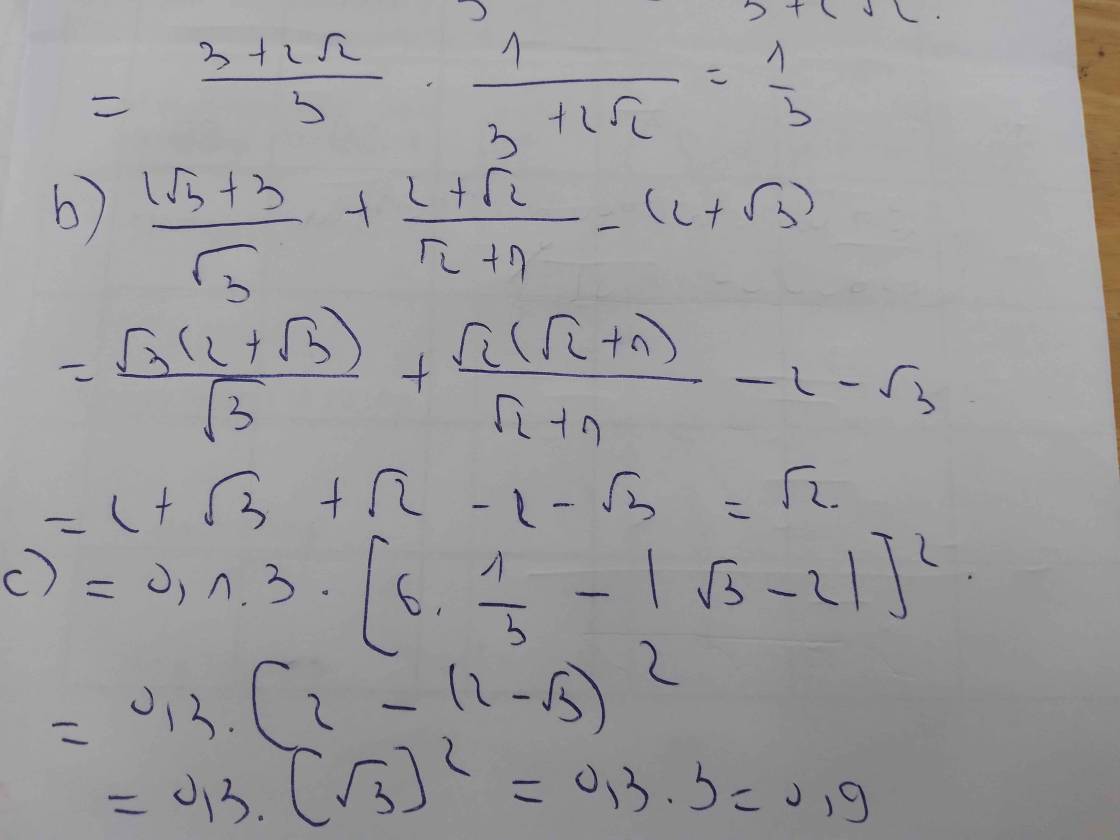 3+2√2.
= (3+2√2)/3 . 1/(3+2√2) = 1/3
b) (2√3+3)/√3 + (2+√2)/(√2+1) - (2+√3)
= √3(2+√3)/√3 + √2(√2+1)/(√2+1) - 2 - √3
= 2+√3 +√2 -2-√3 = √2.
c) = 0,1.3. [6. 1/3 - |√3-2|]².
= 0,3. [2 - (2-√3)²
= 0,3. [√3]² = 0,3.3=0,9